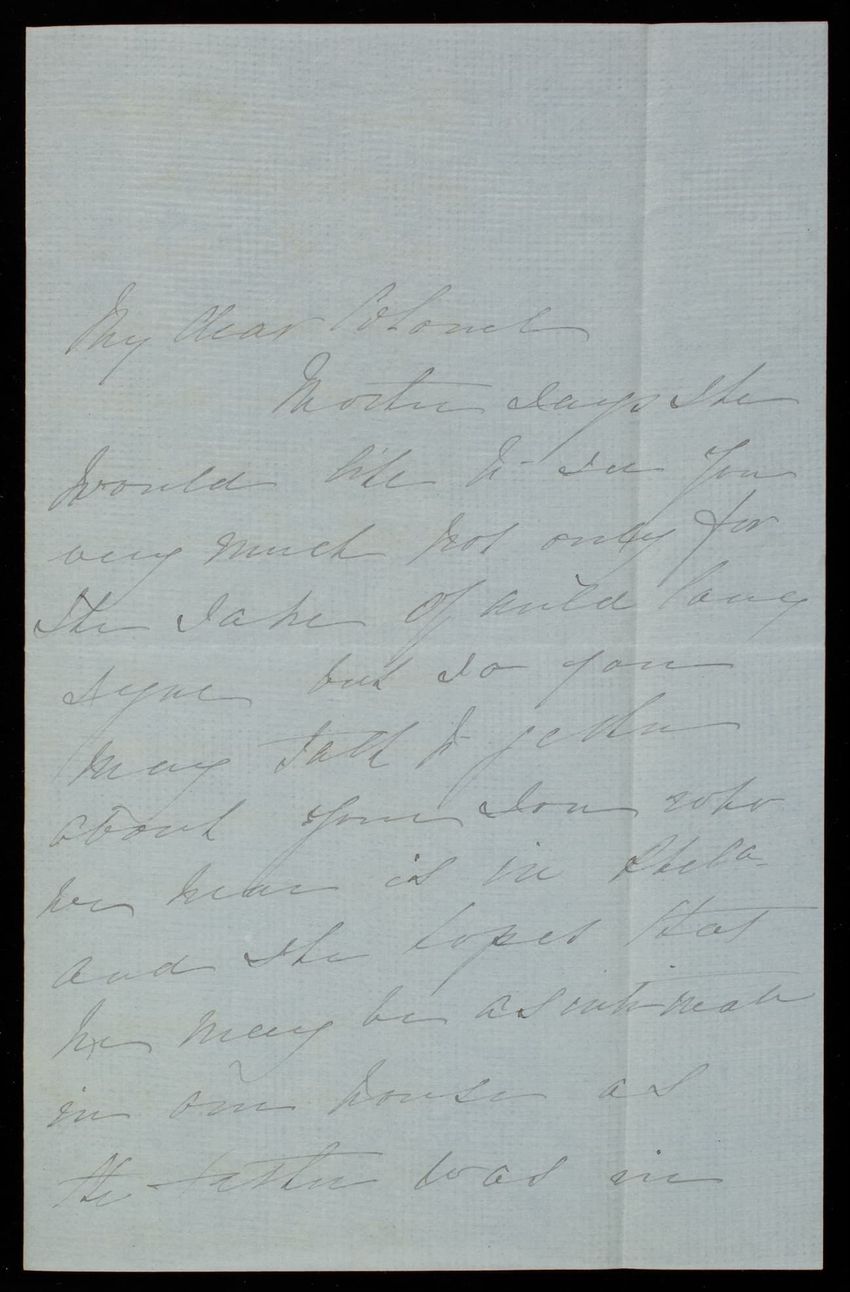 My dear Colonel
Mother says she
would like to see you
very much not only for
the sake of auld lang
syne but so you
may talk to gether
about your son who
we hear is in Phila-
and she hopes that
he may be as intimate
in our house as
the father was in